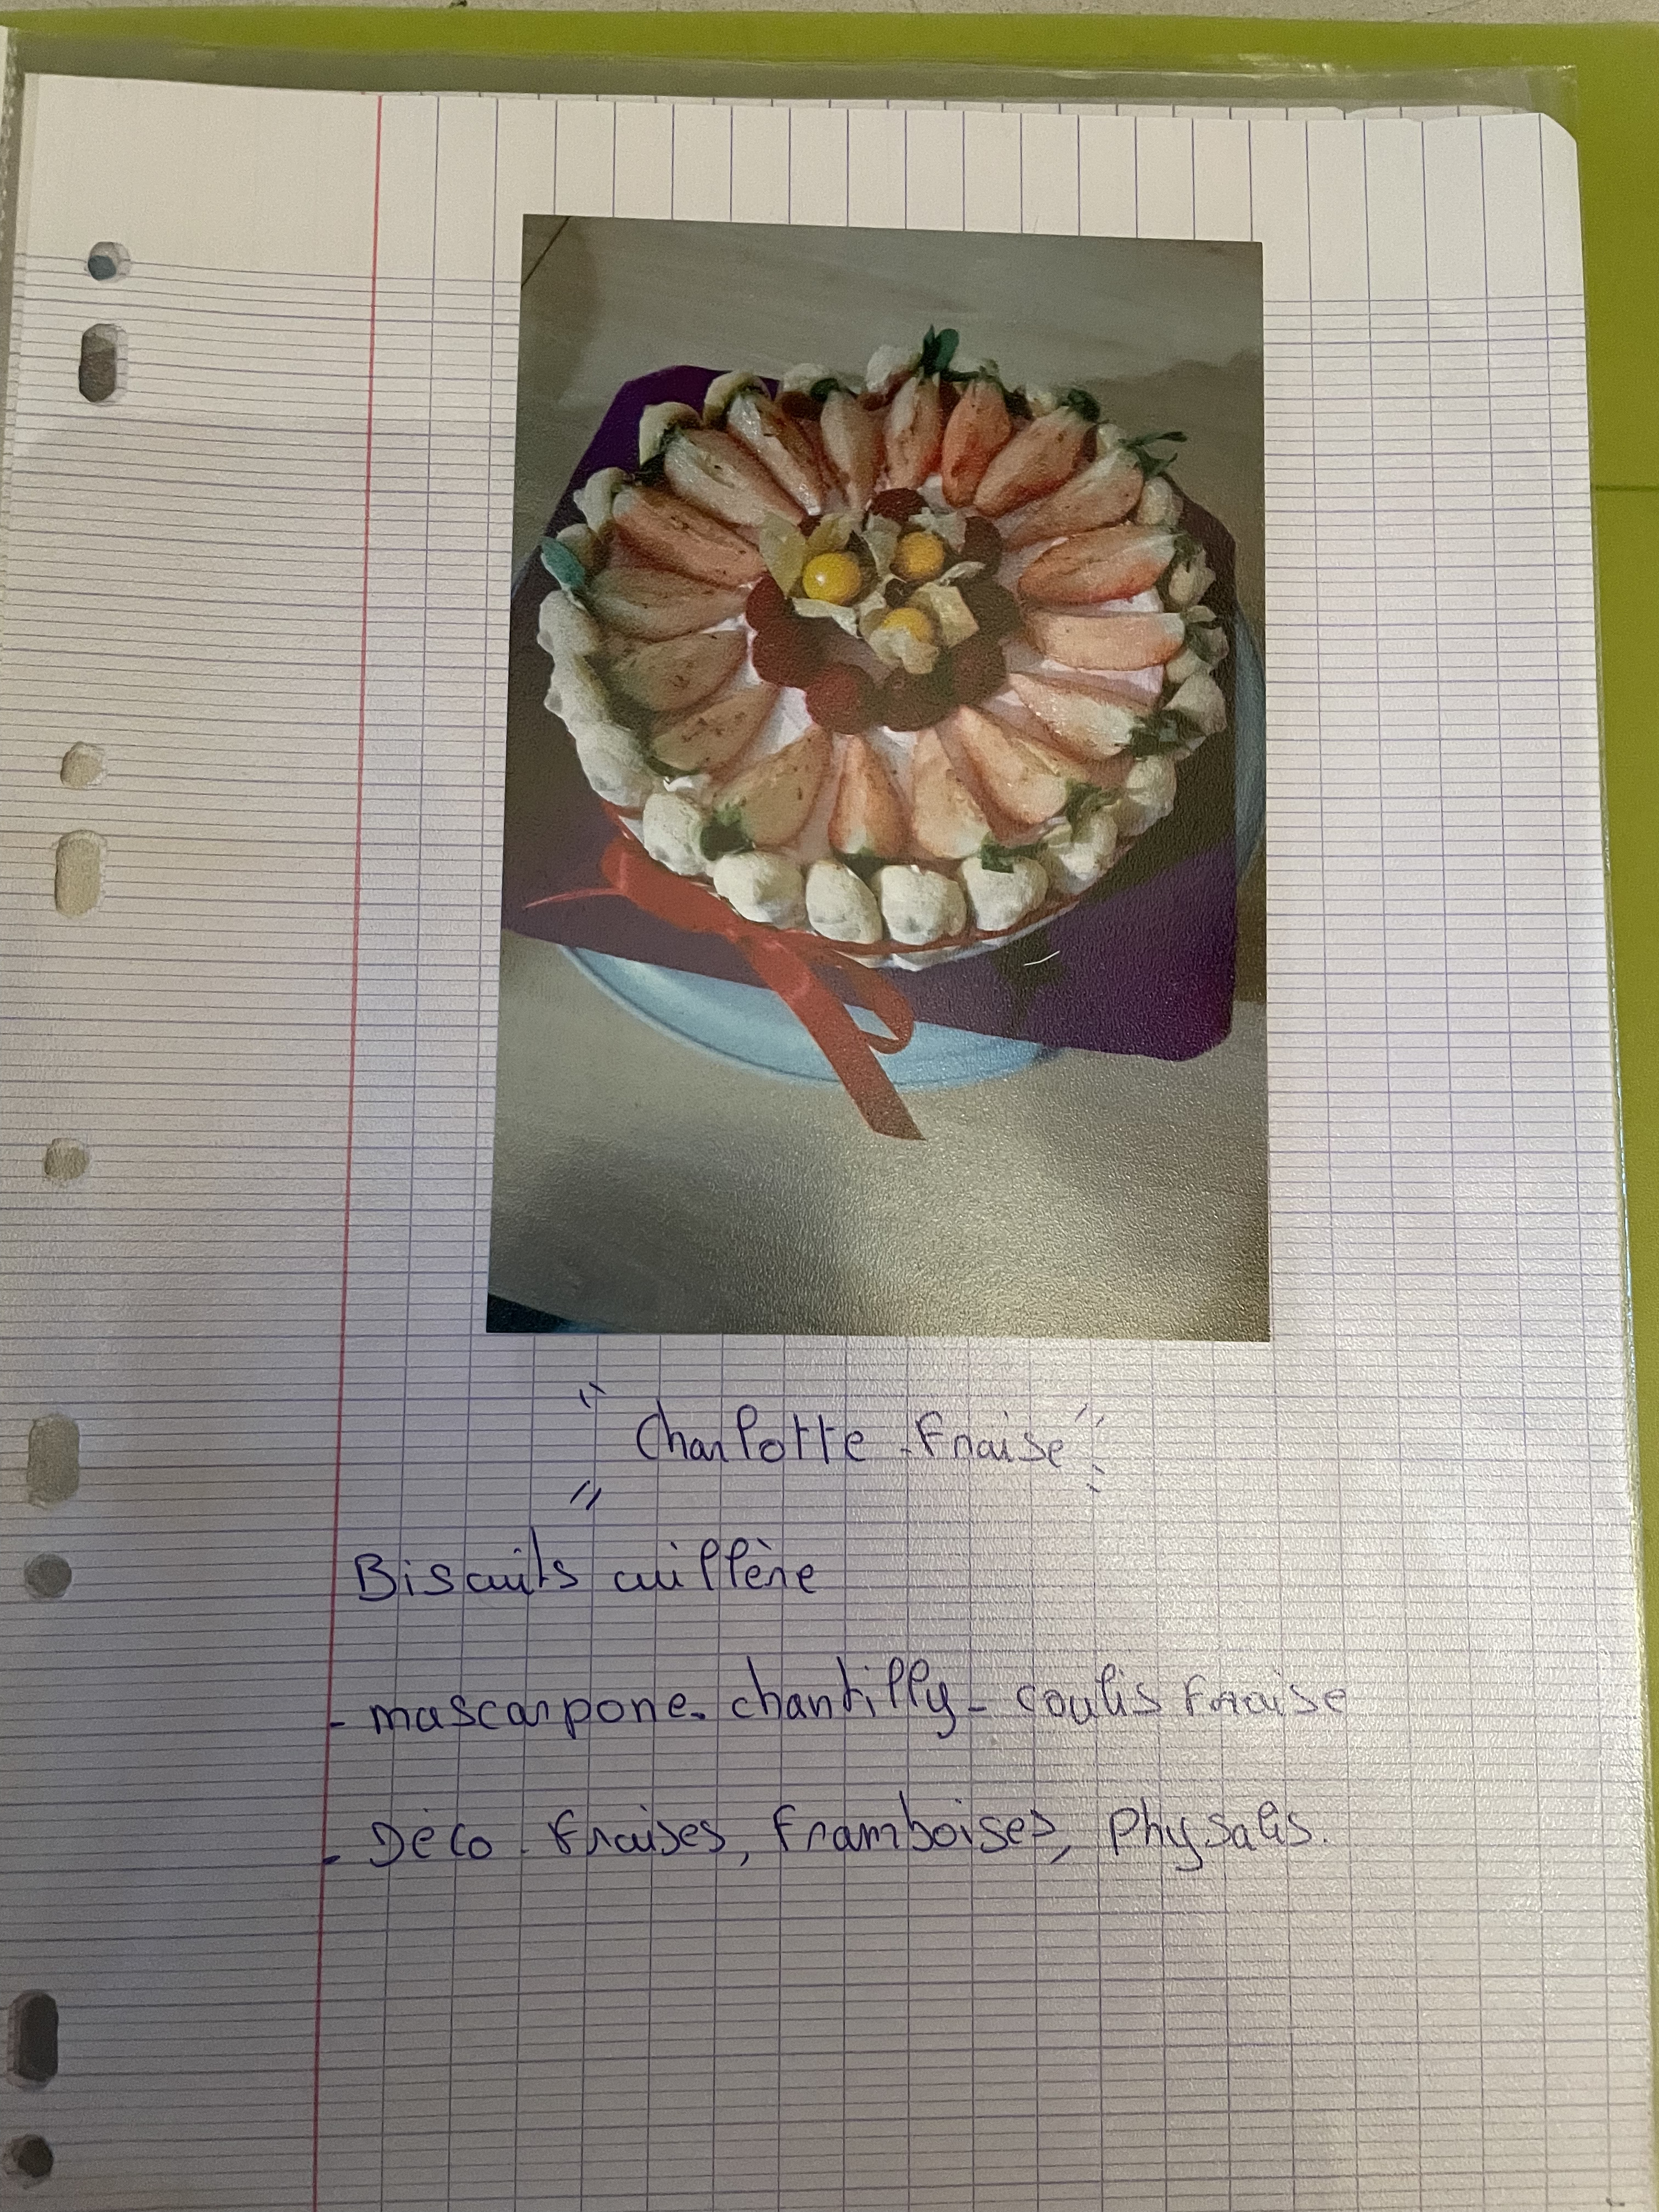 " Charlotte - Fraise "
Biscuits cuillère
- mascarpone - chantilly - coulis fraise
- Déco - fraises, framboises, Physalis.